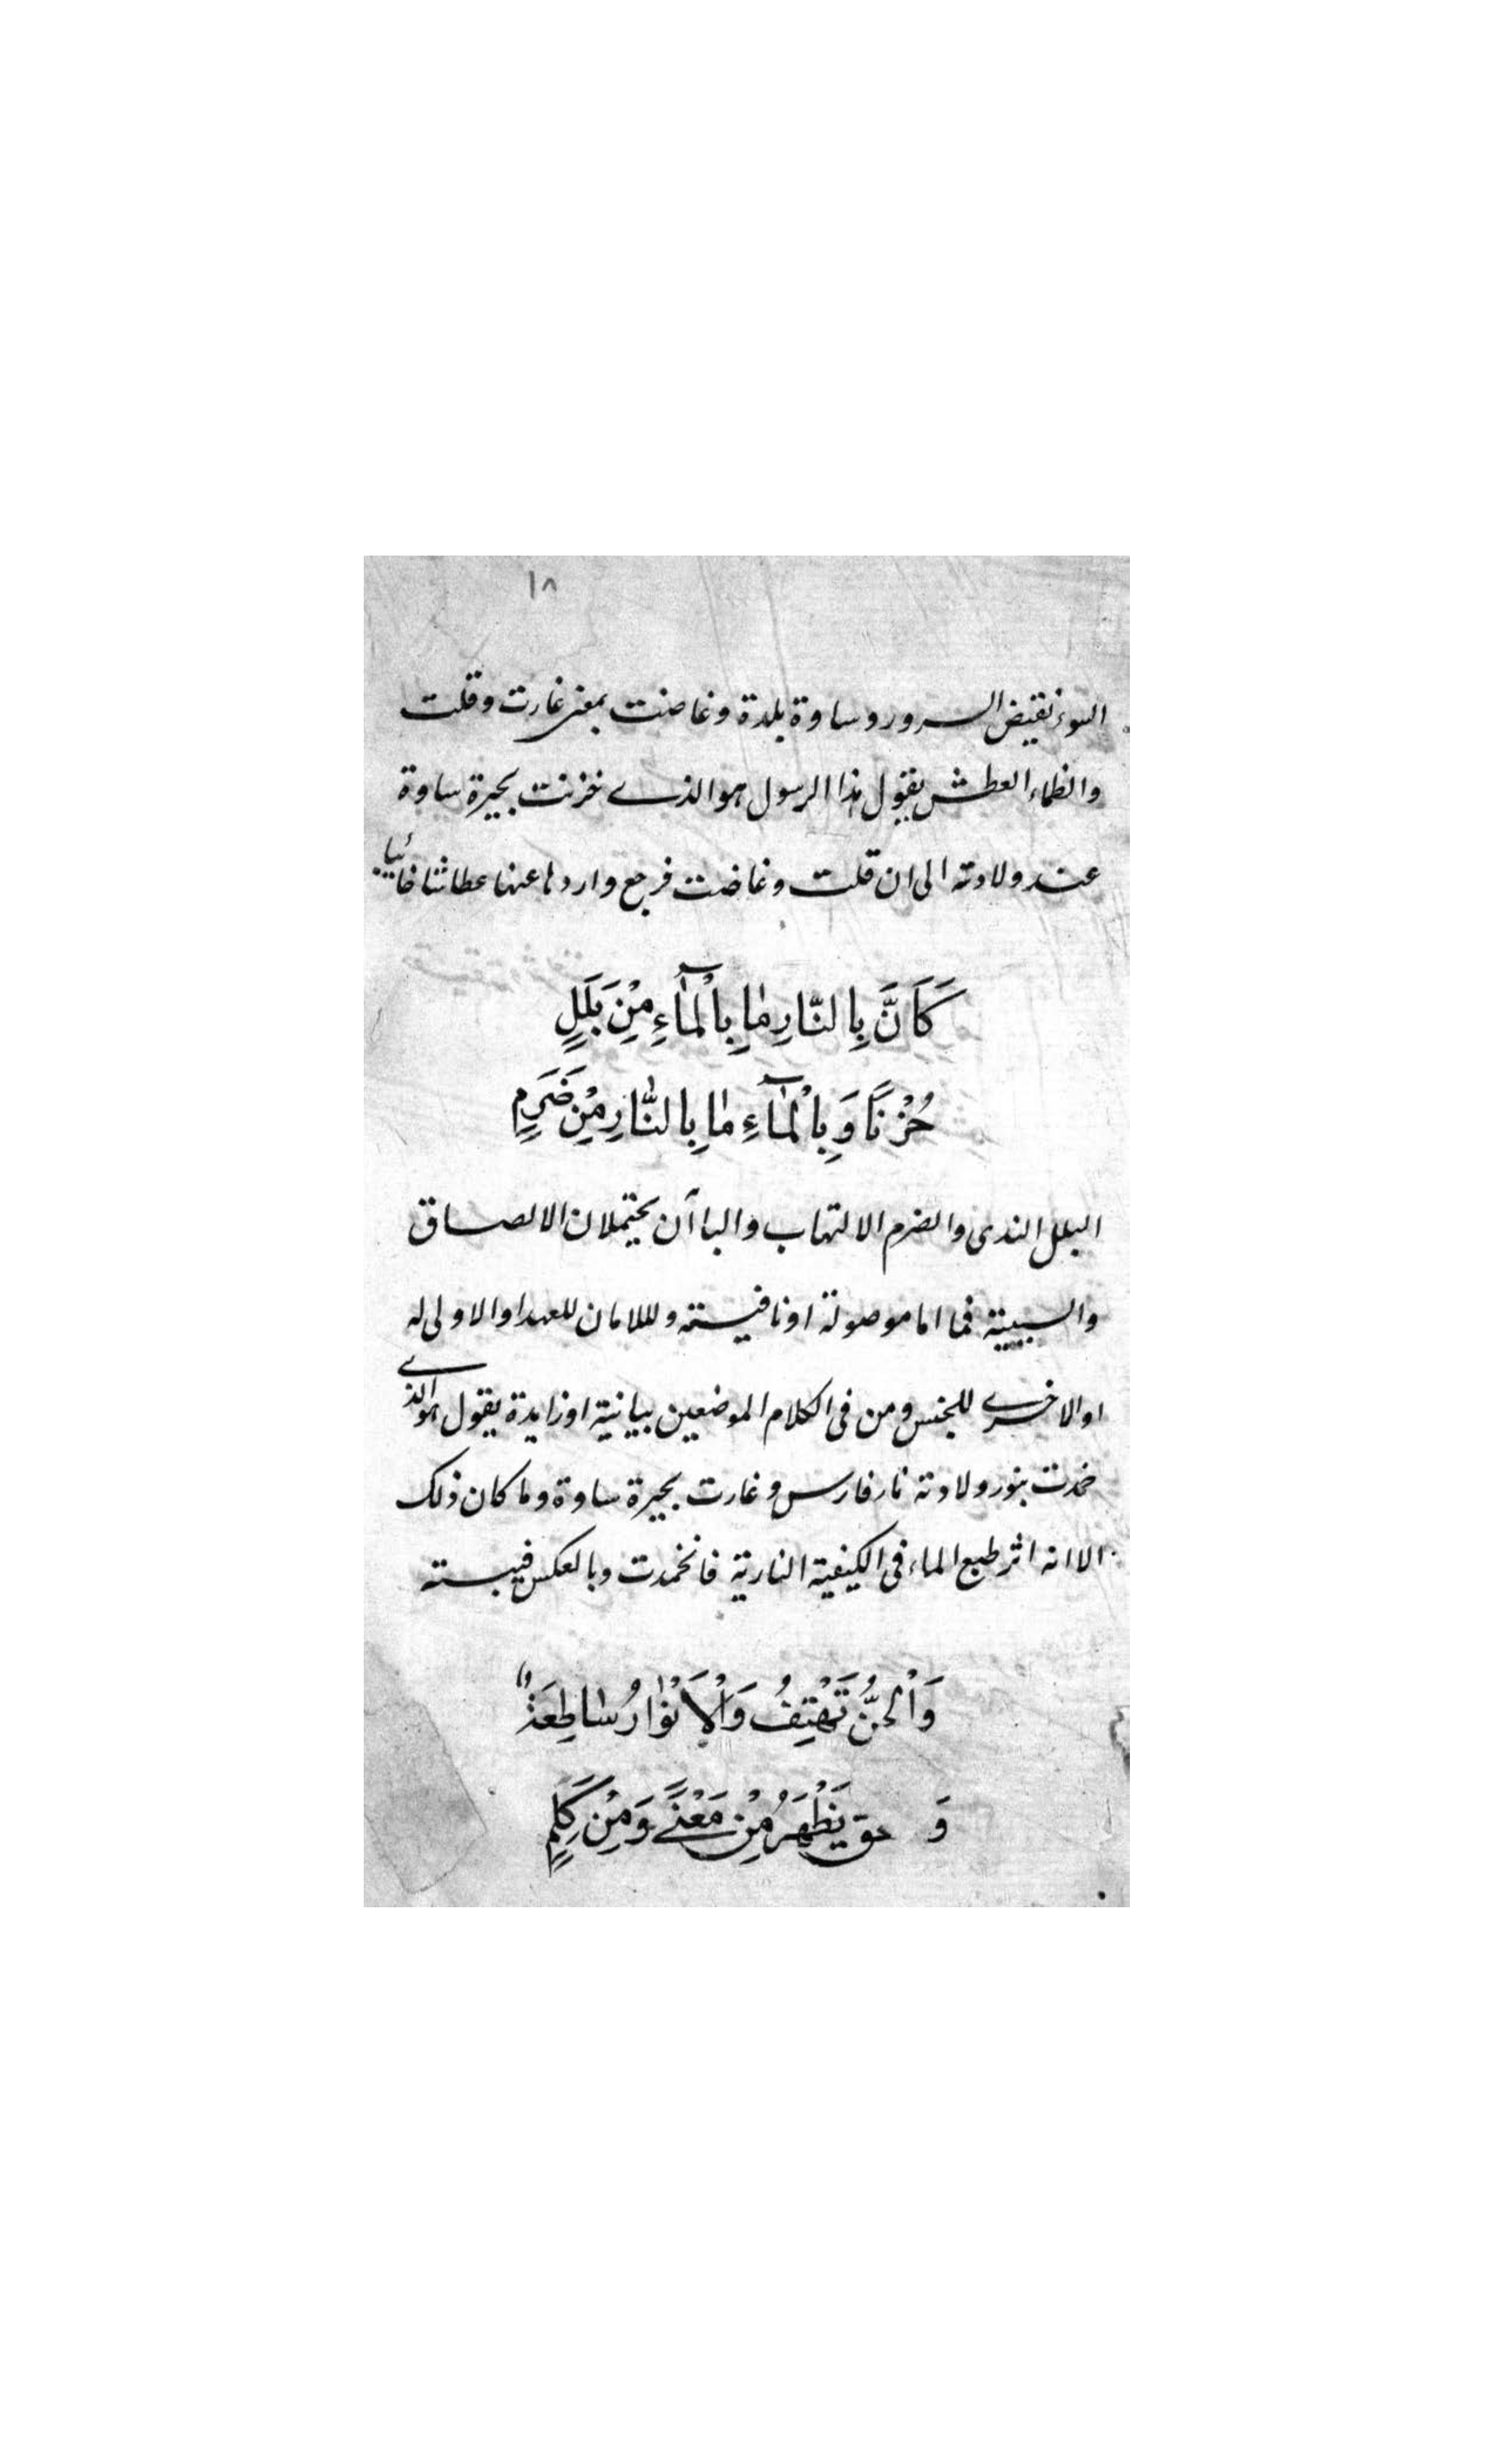 ١٨
السوء نقيض السرور وساوة بلدة وغاضت بمعنى غارت وقلت
والظماء العطش يقول هذا الرسول هو الذي خزنت بحيرة ساوة
عند ولادته الى ان قلت وغاضت فرجع واردها عنها عطاشا خائبا
كَاَنَّ بِالنَّارِ مٰا بِالْمٰآءِ مِنْ بَلَلٍ
حُزْنًا وَبِالْمٰآءِ مٰا بِالنّٰارِ مِنْ ضَرَمٍ
البلل الندى والضرم الالتهاب والباآن يحتملان الالصاق
والسببية فما اما موصولة او نافية واللامان للعهد او الاولى له
او الاخرى للجنس ومن فى الكلام الموضعين بيانية او زايدة يقول هو الذي
خمدت بنور ولادته نار فارس وغارت بحيرة ساوة وما كان ذلك
الا انه اثر طبع الماء فى الكيفية النارية فانخمدت وبالعكس فيبسته
وَالْجِنُّ تَهْتِفُ وَالْاَنْوٰارُ سٰاطِعَةٌ
وَ حق يَظْهَرُ مِنْ مَعْنًى وَمِنْ كَلِمٍ